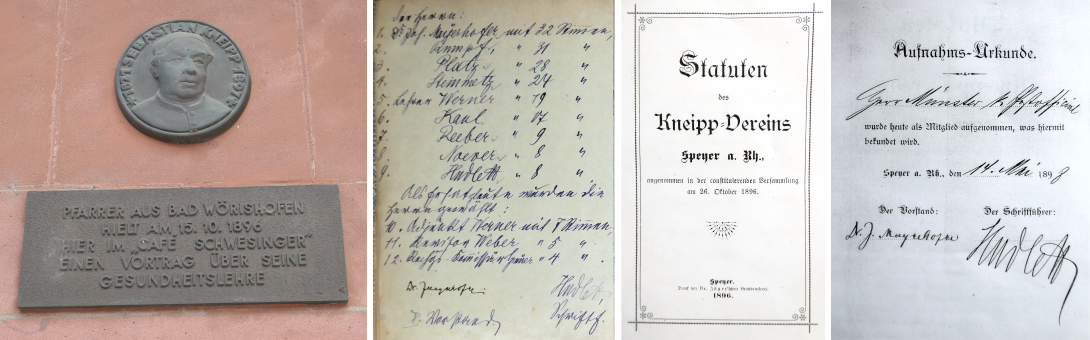 *1821 SEBASTIAN KNEIPP 1897
PFARRER AUS BAD WÖRISHOFEN
HIELT AM 15. 10. 1896
HIER IM „CAFÉ SCHWESINGER"
EINEN VORTRAG ÜBER SEINE
GESUNDHEITSLEHRE
die Herrn:
1. Dr. Joh. Mayerhofer mit 32 Stimmen,
2. Rumpf, " 31 "
3. Platz, " 28 "
4. Steinmetz " 24 "
5. Lehrer Werner " 19 "
6. " 17 "
7. " 9 "
8. " 8 "
9. Hudlett, " 8 "
Als Ersatzleute wurden die
Herrn gewählt:
10. Adjunkt Werner mit 7 Stimmen,
11. Revisor Weber, " 5 "
12. " 4 "
Dr. Mayerhofer.
Hudlett,
D. Vorstand
Schriftf.
Statuten
des
Kneipp-Vereins
Speyer a. Rh.,
angenommen in der constituirenden Versammlung
am 26. Oktober 1896.
Speyer.
Druck der Dr. Jäger'schen Buchdruckerei.
1896.
Aufnahms-Urkunde.
Herr Münster k. Postofficial
wurde heute als Mitglied aufgenommen, was hiermit
bekundet wird.
Speyer a. Rh., den 14. Mai 1898
Der Vorstand: Der Schriftführer:
Dr. J. Mayerhofer Hudlett